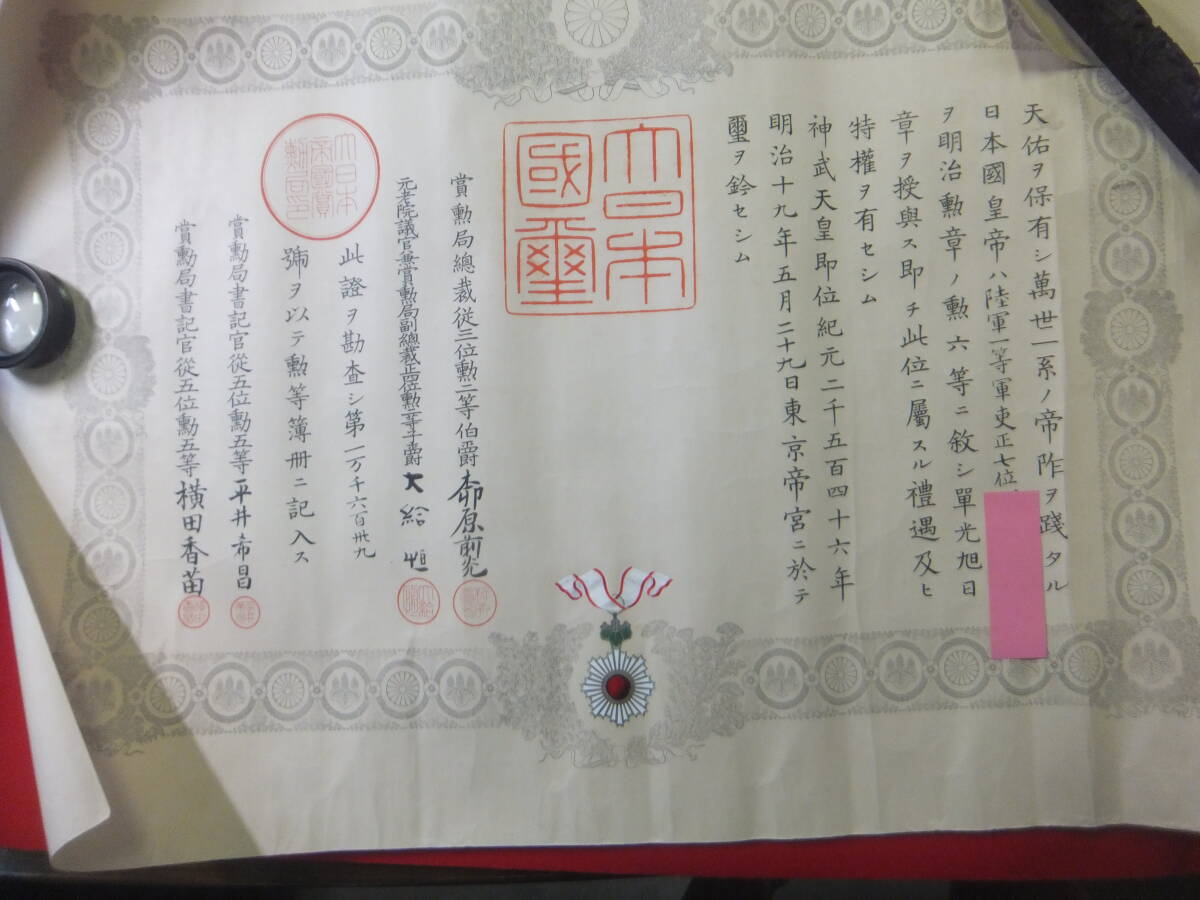 天佑ヲ保有シ萬世一系ノ帝阼ヲ踐タル
日本國皇帝ハ陸軍一等軍吏正七位
ヲ明治勲章ノ勲六等ニ敘シ單光旭日
章ヲ授與ス即チ此位ニ屬スル禮遇及ヒ
特權ヲ有セシム
神武天皇即位紀元二千五百四十六年
明治十九年五月二十九日東京帝宮ニ於テ
璽ヲ鈐セシム
大日本
國璽
賞勲局總裁從三位勲二等伯爵柳原前光
元老院議官兼賞勲局副總裁正四位勲二等子爵大給恒
此證ヲ勘査シ第一万千六百卅九
號ヲ以テ勲等簿册ニ記入ス
大日本
帝國賞
勲局印
賞勲局書記官從五位勲五等平井希昌
賞勲局書記官從五位勲五等横田香苗